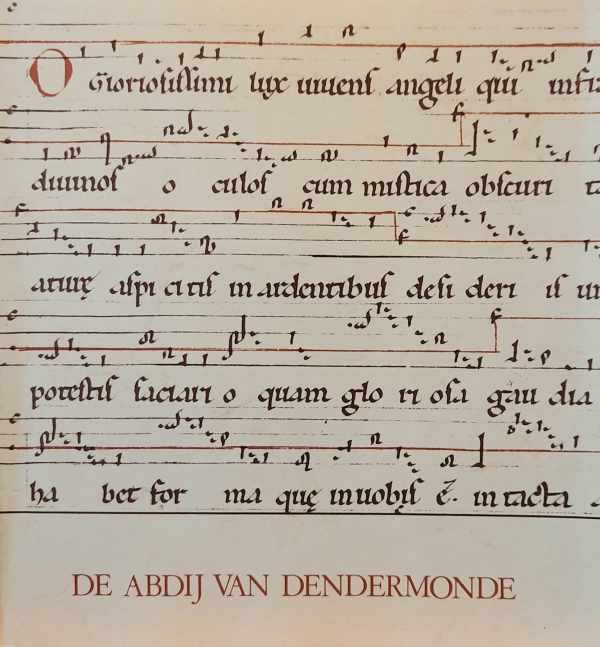 O Gloriosissimi lux uiuens angeli qui infra
diuinos o culos cum mistica obscuri ta
aturę aspi ci tis in ardentibus desi deri is un
potestis saciari o quam glo ri osa gau dia
ha bet for ma quę in uobis ē. in tacta
DE ABDIJ VAN DENDERMONDE